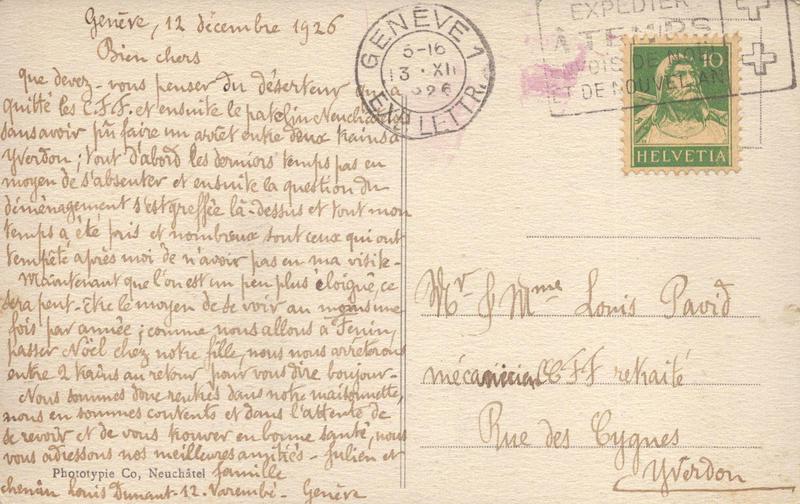 Genève, 12 décembre 1926
Bien chers
que devez-vous penser du déserteur qui a
quitté les C.F.F. et ensuite le patelin Neuchâtelois
sans avoir pu faire un arrêt entre deux trains à
Yverdon; tout d'abord les derniers temps pas eu
moyen de s'absenter et ensuite la question du
déménagement s'est greffée là-dessus et tout mon
temps a été pris et nombreux sont ceux qui ont
tempêté après moi de n'avoir pas eu ma visite-
Maintenant que l'on est un peu plus éloigné, ce
sera peut-être le moyen de se voir au moins une
fois par année; comme nous allons à Fenin,
passer Noël chez notre fille, nous nous arrêterons
entre 2 trains au retour pour vous dire bonjour-
Nous sommes donc rentrés dans notre maisonnette,
nous en sommes contents et dans l'attente de
se revoir et de vous trouver en bonne santé, nous
vous adressons nos meilleures amitiés - Julien et
famille
chemin Louis Dunant-12. Varembé- Genève
Phototypie Co, Neuchâtel
GENÈVE 1
5-16
13·XII
926
EXP. LETTR.
EXPÉDIER
À TEMPS
ET DE NOUVEL AN
10
HELVETIA
Mr & Mme Louis Pavid
mécanicien CFF retraité
Rue des Cygnes
Yverdon